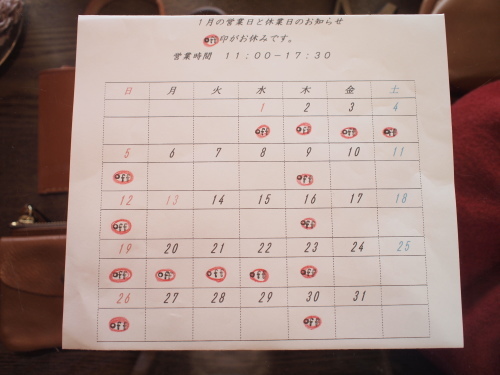 1月の営業日と休業日のお知らせ
off印がお休みです。
営業時間 11:00-17:30
日 月 火 水 木 金 土
1 2 3 4
off off off off
5 6 7 8 9 10 11
off off
12 13 14 15 16 17 18
off off
19 20 21 22 23 24 25
off off off off off
26 27 28 29 30 31
off off